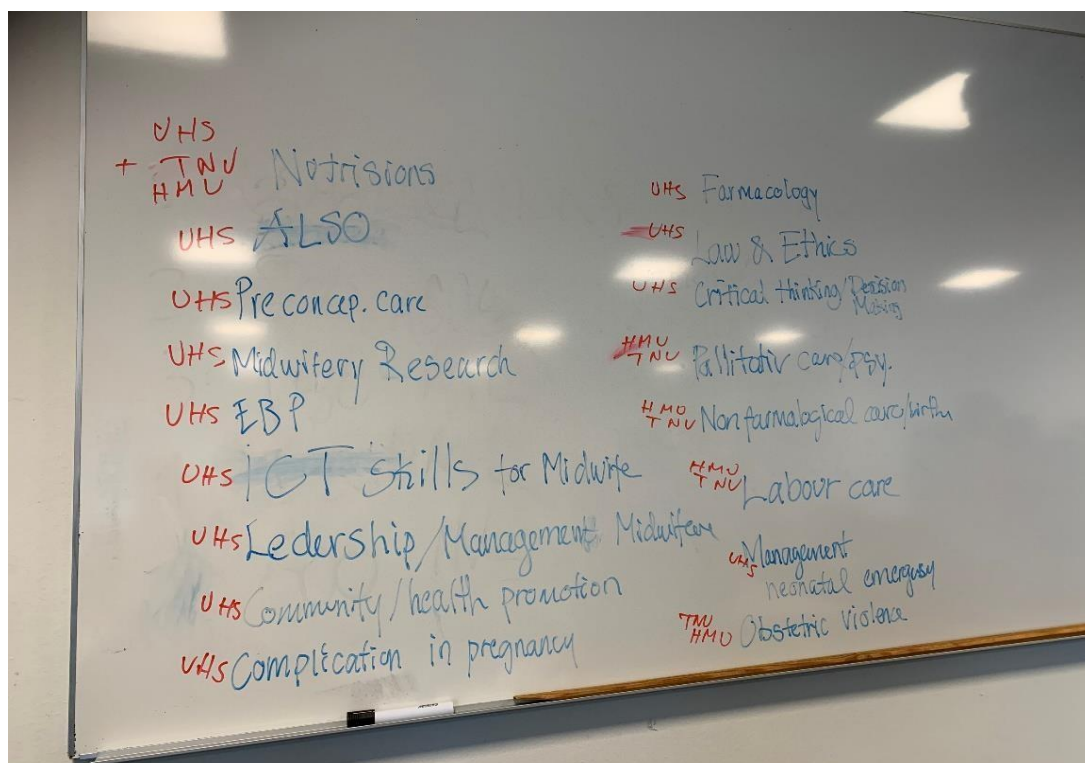 UHS
+ TNU
HMU Nutrisions
UHS ALSO
UHS Preconcep. care
UHS Midwifery Research
UHS EBP
UHS ICT Skills for Midwife
UHS Ledership/Management Midwifery
UHS Community/health promotion
UHS Complication in pregnancy
UHS Farmacology
UHS Law & Ethics
UHS Critical thinking/Decision
Making
HMU
TNU Pallitativ care/psy.
HMU
TNU Nonfarmalogical care/birth
HMU
TNU Labour care
UHS Management
neonatal emergusy
TNU
HMU Obstetric violence